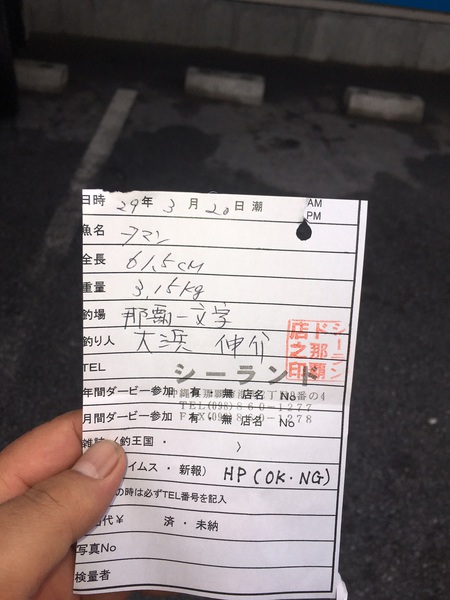 日時 29年 3月 20日 潮 AM PM
魚名 タマン
全長 61,5cm
重量 3,15kg
釣場 那覇一文字
釣り人 大浜 伸介
シーランド那覇店之印
TEL
シーランド
年間ダービー参加 有・無 店名 No
TEL(098)860-1277
月間ダービー参加 有・無 店名 No
FAX(098)860-1278
雑誌(釣王国・ )
イムス・新報) HP(OK・NG)
の時は必ずTEL番号を記入
代¥ 済・未納
写真No
検量者